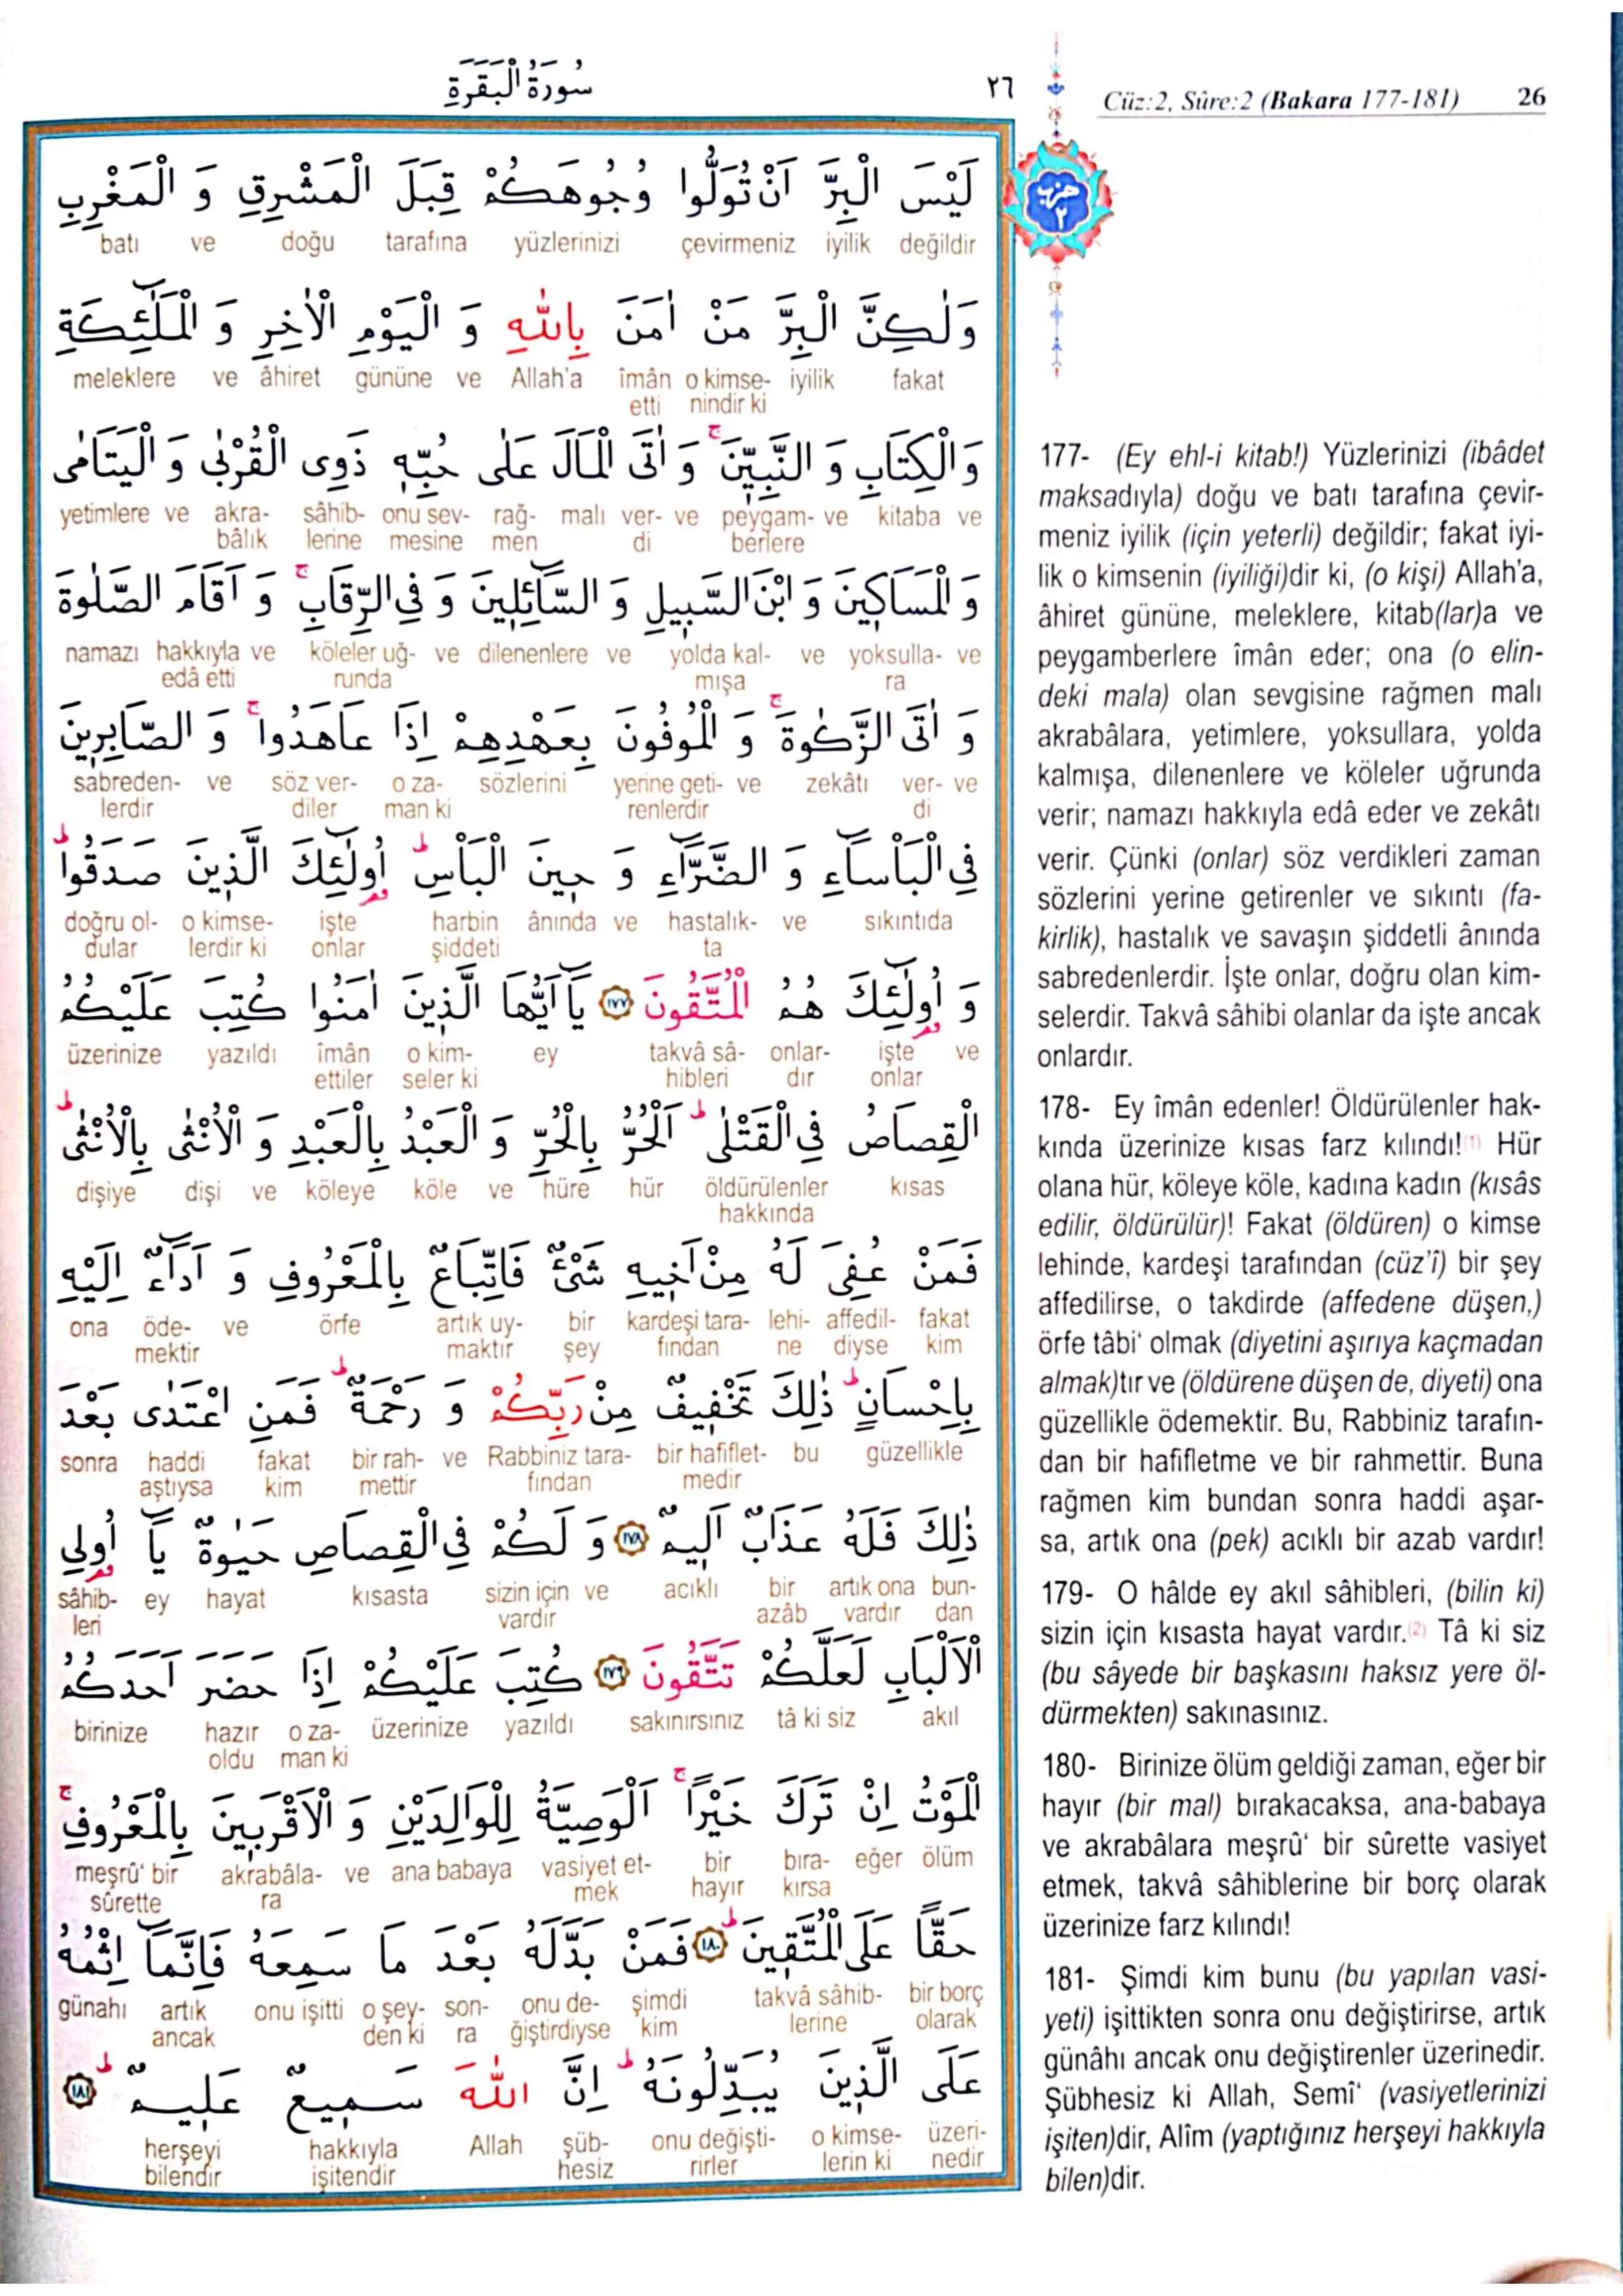 سُورَةُ الْبَقَرَةِ
٢٦
Cüz:2, Sûre:2 (Bakara 177-181) 26
حزب ٢
لَيْسَ الْبِرَّ اَنْ تُوَلُّوا وُجُوهَكُمْ قِبَلَ الْمَشْرِقِ وَ الْمَغْرِبِ
değildir iyilik çevirmeniz yüzlerinizi tarafına doğu ve batı
وَلٰكِنَّ الْبِرَّ مَنْ اٰمَنَ بِاللّٰهِ وَ الْيَوْمِ الْاٰخِرِ وَ الْمَلٰٓئِكَةِ
fakat iyilik o kimse- îmân Allah'a ve gününe âhiret ve meleklere
nindir ki etti
وَالْكِتَابِ وَ النَّبِيّٖنَۚ وَ اٰتَى الْمَالَ عَلٰى حُبِّهٖ ذَوِى الْقُرْبٰى وَ الْيَتَامٰى
ve kitaba ve peygam- ve ver- malı rağ- onu sev- sâhib- akra- ve yetimlere
berlere di men mesine lerine bâlık
وَ الْمَسَاكٖينَ وَ ابْنَ السَّبٖيلِ وَ السَّٓائِلٖينَ وَ فِى الرِّقَابِۚ وَ اَقَامَ الصَّلٰوةَ
ve yoksulla- ve yolda kal- ve dilenenlere ve köleler uğ- ve hakkıyla namazı
ra mışa runda edâ etti
وَ اٰتَى الزَّكٰوةَۚ وَ الْمُوفُونَ بِعَهْدِهِمْ اِذَا عَاهَدُواۚ وَ الصَّابِرٖينَ
ve ver- zekâtı ve yerine geti- sözlerini o za- söz ver- ve sabreden-
di renlerdir man ki diler lerdir
فِى الْبَأْسَٓاءِ وَ الضَّرَّٓاءِ وَ حٖينَ الْبَأْسِۜ اُولٰٓئِكَ الَّذٖينَ صَدَقُواۜ
sıkıntıda ve hastalık- ve ânında harbin işte o kimse- doğru ol-
ta şiddeti onlar lerdir ki dular
وَ اُولٰٓئِكَ هُمُ الْمُتَّقُونَ ١٧٧ يَٓا اَيُّهَا الَّذٖينَ اٰمَنُوا كُتِبَ عَلَيْكُمُ
ve işte onlar- takvâ sâ- ey o kim- îmân yazıldı üzerinize
onlar dır hibleri seler ki ettiler
الْقِصَاصُ فِى الْقَتْلٰىۜ اَلْحُرُّ بِالْحُرِّ وَ الْعَبْدُ بِالْعَبْدِ وَ الْاُنْثٰى بِالْاُنْثٰىۜ
kısas öldürülenler hür hüre ve köle köleye ve dişi dişiye
hakkında
فَمَنْ عُفِىَ لَهُ مِنْ اَخٖيهِ شَىْءٌ فَاتِّبَاعٌ بِالْمَعْرُوفِ وَ اَدَٓاءٌ اِلَيْهِ
fakat affedil- lehi- kardeşi tara- bir artık uy- örfe ve öde- ona
kim diyse ne fından şey maktır mektir
بِاِحْسَانٍۜ ذٰلِكَ تَخْفٖيفٌ مِنْ رَبِّكُمْ وَ رَحْمَةٌۜ فَمَنِ اعْتَدٰى بَعْدَ
güzellikle bu bir hafiflet- Rabbiniz tara- ve bir rah- fakat haddi sonra
medir fından mettir kim aştıysa
ذٰلِكَ فَلَهُ عَذَابٌ اَلٖيمٌ ١٧٨ وَ لَكُمْ فِى الْقِصَاصِ حَيٰوةٌ يَٓا اُولِى
bun- artık ona bir acıklı ve sizin için kısasta hayat ey sâhib-
dan vardır azâb vardır leri
الْاَلْبَابِ لَعَلَّكُمْ تَتَّقُونَ ١٧٩ كُتِبَ عَلَيْكُمْ اِذَا حَضَرَ اَحَدَكُمُ
akıl tâ ki siz sakınırsınız yazıldı üzerinize o za- hazır birinize
man ki oldu
الْمَوْتُ اِنْ تَرَكَ خَيْرًاۚ اَلْوَصِيَّةُ لِلْوَالِدَيْنِ وَ الْاَقْرَبٖينَ بِالْمَعْرُوفِۚ
ölüm eğer bıra- bir vasiyet et- ana babaya ve akrabâla- meşrû‘ bir
kırsa hayır mek ra sûrette
حَقًّا عَلَى الْمُتَّقٖينَۜ ١٨٠ فَمَنْ بَدَّلَهُ بَعْدَ مَا سَمِعَهُ فَاِنَّمَٓا اِثْمُهُ
bir borç takvâ sâhib- şimdi onu de- son- o şey- onu işitti artık günahı
olarak lerine kim ğiştirdiyse ra den ki ancak
عَلَى الَّذٖينَ يُبَدِّلُونَهُۜ اِنَّ اللّٰهَ سَمٖيعٌ عَلٖيمٌۜ ١٨١
üzeri- o kimse- onu değişti- şüb- Allah hakkıyla herşeyi
nedir lerin ki rirler hesiz işitendir bilendir
177- (Ey ehl-i kitab!) Yüzlerinizi (ibâdet
maksadıyla) doğu ve batı tarafına çevir-
meniz iyilik (için yeterli) değildir; fakat iyi-
lik o kimsenin (iyiliği)dir ki, (o kişi) Allah'a,
âhiret gününe, meleklere, kitab(lar)a ve
peygamberlere îmân eder; ona (o elin-
deki mala) olan sevgisine rağmen malı
akrabâlara, yetimlere, yoksullara, yolda
kalmışa, dilenenlere ve köleler uğrunda
verir; namazı hakkıyla edâ eder ve zekâtı
verir. Çünki (onlar) söz verdikleri zaman
sözlerini yerine getirenler ve sıkıntı (fa-
kirlik), hastalık ve savaşın şiddetli ânında
sabredenlerdir. İşte onlar, doğru olan kim-
selerdir. Takvâ sâhibi olanlar da işte ancak
onlardır.
178- Ey îmân edenler! Öldürülenler hak-
kında üzerinize kısas farz kılındı!(1) Hür
olana hür, köleye köle, kadına kadın (kısâs
edilir, öldürülür)! Fakat (öldüren) o kimse
lehinde, kardeşi tarafından (cüz'î) bir şey
affedilirse, o takdirde (affedene düşen,)
örfe tâbi‘ olmak (diyetini aşırıya kaçmadan
almak)tır ve (öldürene düşen de, diyeti) ona
güzellikle ödemektir. Bu, Rabbiniz tarafın-
dan bir hafifletme ve bir rahmettir. Buna
rağmen kim bundan sonra haddi aşar-
sa, artık ona (pek) acıklı bir azab vardır!
179- O hâlde ey akıl sâhibleri, (bilin ki)
sizin için kısasta hayat vardır.(2) Tâ ki siz
(bu sâyede bir başkasını haksız yere öl-
dürmekten) sakınasınız.
180- Birinize ölüm geldiği zaman, eğer bir
hayır (bir mal) bırakacaksa, ana-babaya
ve akrabâlara meşrû‘ bir sûrette vasiyet
etmek, takvâ sâhiblerine bir borç olarak
üzerinize farz kılındı!
181- Şimdi kim bunu (bu yapılan vasi-
yeti) işittikten sonra onu değiştirirse, artık
günâhı ancak onu değiştirenler üzerinedir.
Şübhesiz ki Allah, Semî‘ (vasiyetlerinizi
işiten)dir, Alîm (yaptığınız herşeyi hakkıyla
bilen)dir.